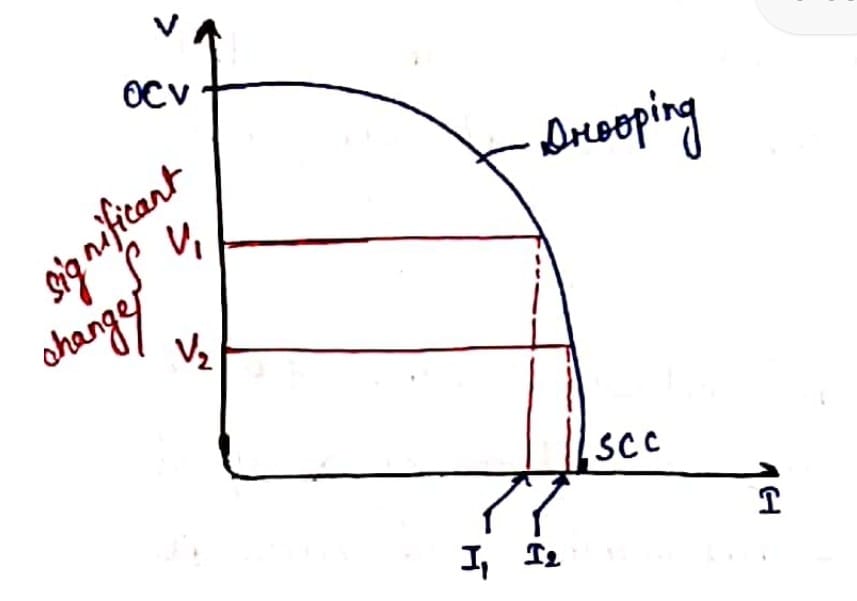 V
OCV
Drooping
significant
change
V₁
V₂
SCC
I
I₁
I₂